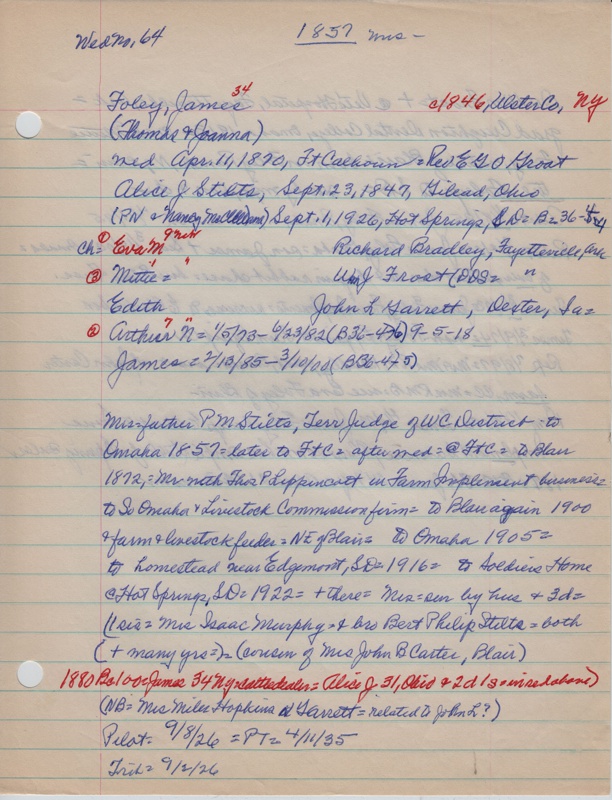 Wed No, 64 1857 Mrs -
Foley, James 34 c/1846, Ulster Co, NY
(Thomas & Joanna)
med Apr. 11, 1870, Ft Calhoun = Rev E G O Groat
Alice J Stilts, Sept. 23, 1847, Gilead, Ohio
(PN & Nancy ) Sept. 1, 1926, Hot Springs, SD = B = 36-
ch = ① Eva M 9 Richard Bradley, Fayetteville, Ark
③ Mittie = " W J Frost (DDS = "
Edith John L Garrett, Dexter, Ia =
② Arthur "7" N = 1/5/73 - 6/23/82 (B36-4-6) 9-5-18
James = 2/13/85 - 3/10/00 (B36-4-5)
Mrs = father P M Stilts, Terr Judge of WC District - to
Omaha 1857 = later to FtC = after med = @ FtC = to Blair
1872, = Mr with Thos P Lippincott in Farm Implement business =
to So Omaha & Livestock Commission firm = to Blair again 1900
& farm & livestock feeder = NE of Blair = to Omaha 1905 =
to homestead near Edgemont, SD = 1916 = to Soldiers Home
@ Hot Springs, SD = 1922 = + there = Mrs = sur by hus & 3d =
(1 sis = Mrs Isaac Murphy = & bro Bert Philip Stilts = both
(+ many yrs =) = (cousin of Mrs John B Carter, Blair)
1880 Bs 100 = James 34 Ny = cattledealer = Alice J. 31, Ohio & 2d 1s = in red above)
(NB = Mrs Miles Hopkins N Garrett = related to John L?)
Pilot = 9/8/26 = PT = 4/11/35
Trib = 9/2/26